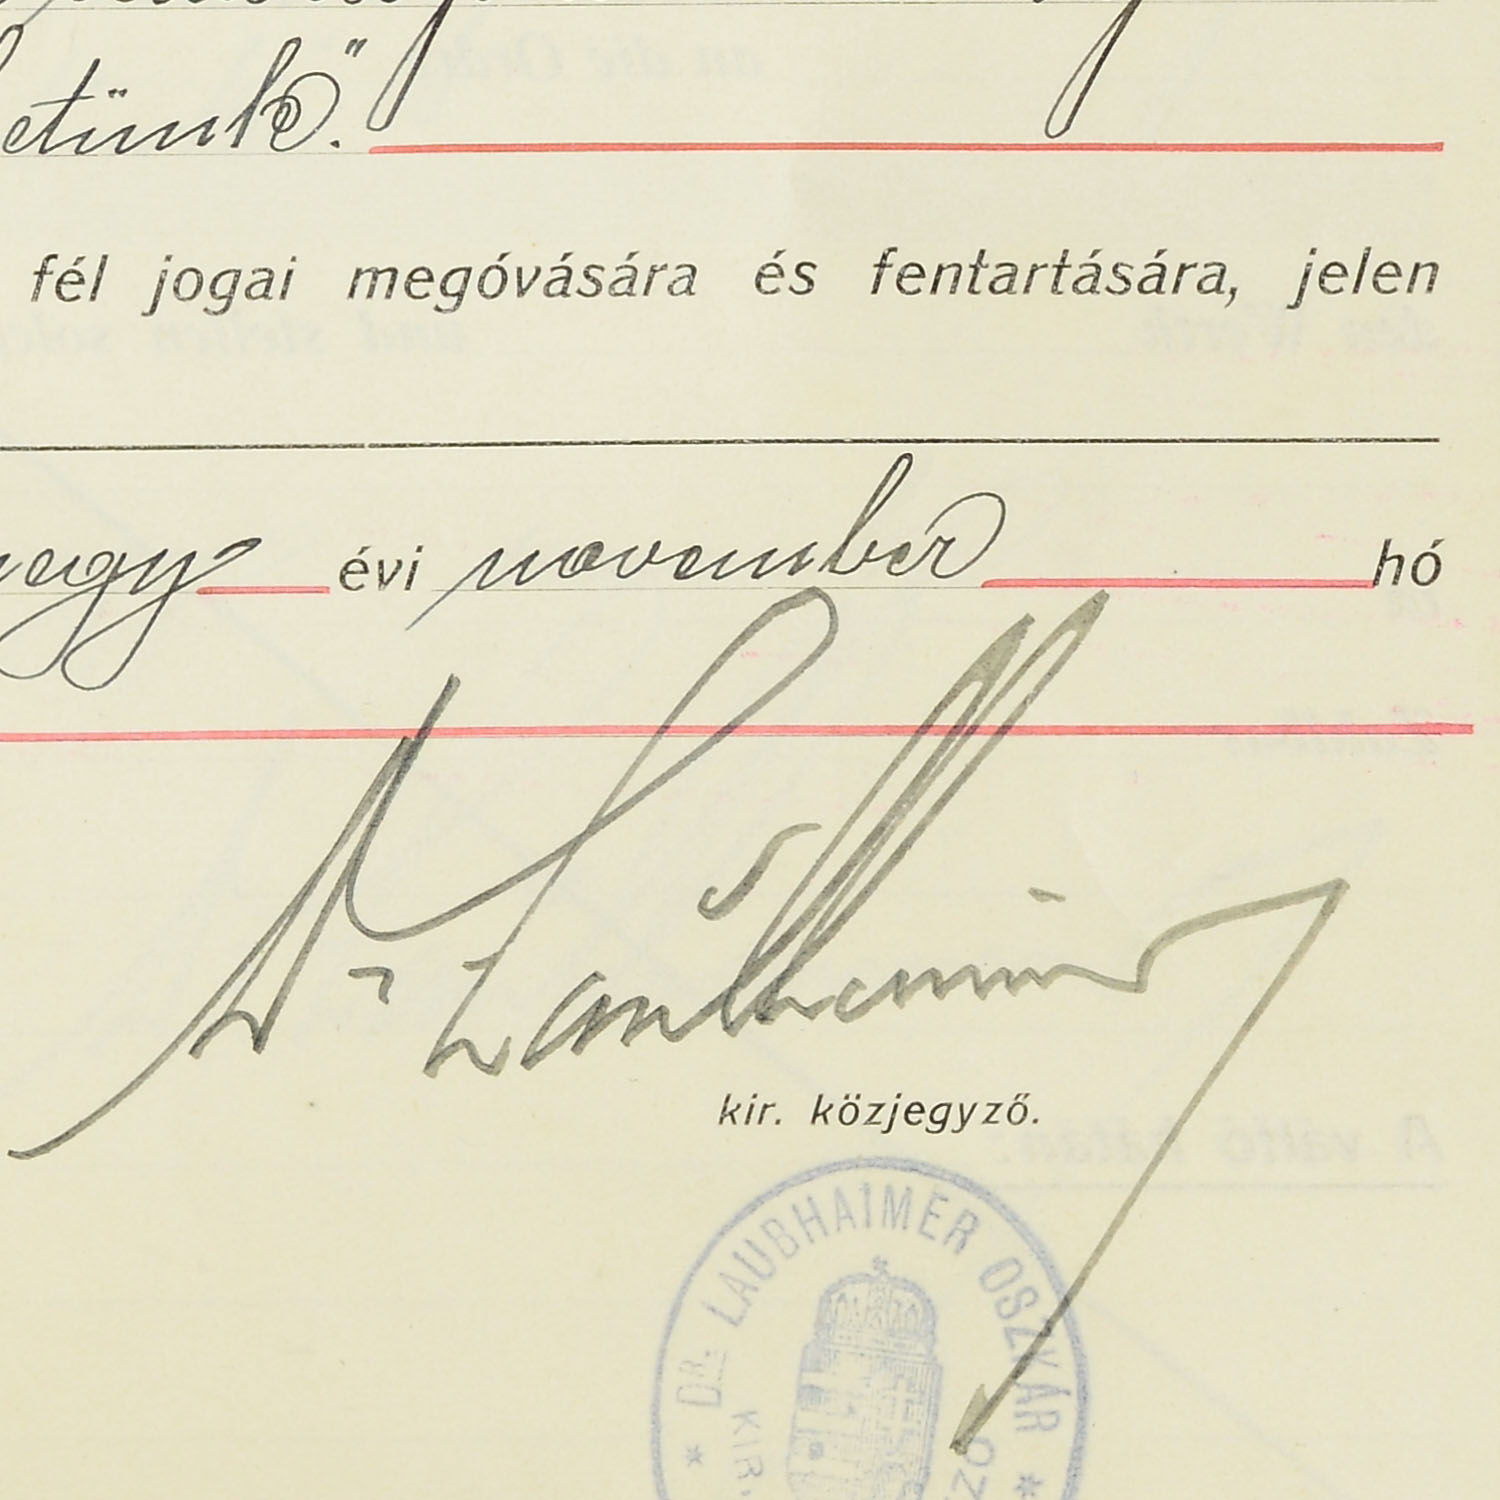 etünk."
fél jogai megóvására és fentartására, jelen
évi november hó
Dr Laubhaimer
kir. közjegyző.
* DR. LAUBHAIMER OSZKÁR *
KIR.